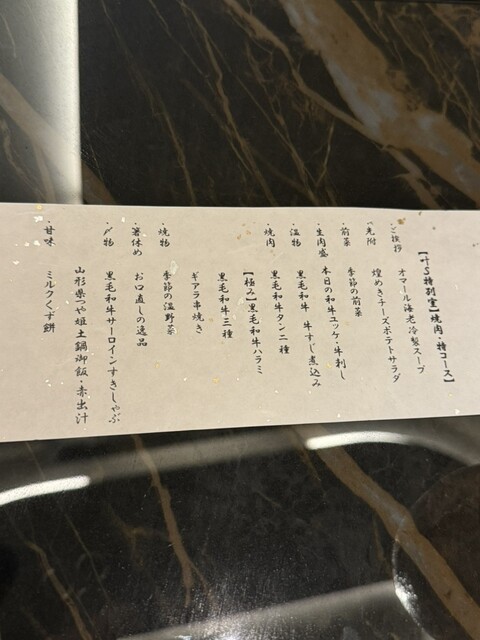 【叶S特別室】焼肉・特コース】
・ご挨拶 オマール海老冷製スープ
・先附 煌めきチーズポテトサラダ
・前菜 季節の前菜
・生肉盛 本日の和牛ユッケ・牛刺し
・温物 黒毛和牛 牛すじ煮込み
・焼肉 黒毛和牛タン二種
【極み】黒毛和牛ハラミ
黒毛和牛三種
ギアラ串焼き
・焼物 季節の温野菜
・箸休め お口直しの逸品
・〆物 黒毛和牛サーロインすきしゃぶ
山形県つや姫土鍋御飯・赤出汁
・甘味 ミルクくず餅